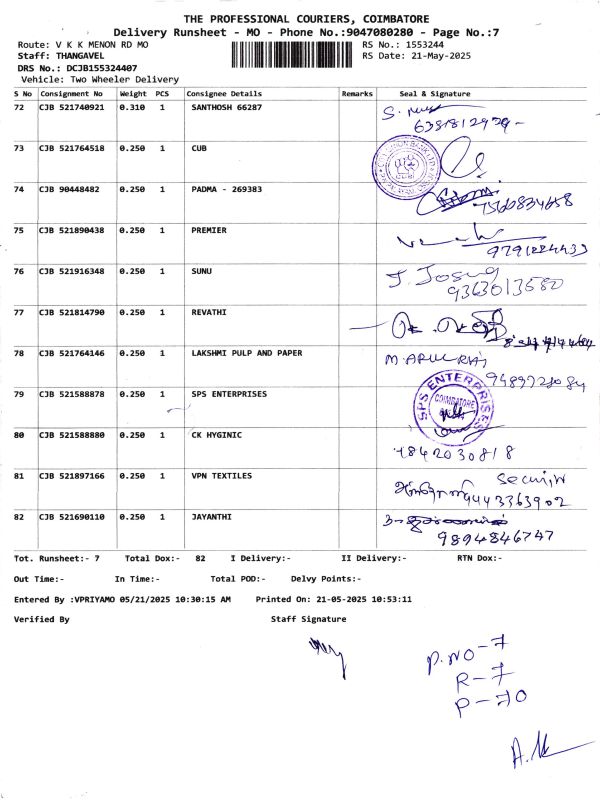 THE PROFESSIONAL COURIERS, COIMBATORE
Delivery Runsheet - MO - Phone No.:9047080280 - Page No.:7
Route: V K K MENON RD MO RS No.: 1553244
Staff: THANGAVEL RS Date: 21-May-2025
DRS No.: DCJB155324407
Vehicle: Two Wheeler Delivery
S No Consignment No Weight PCS Consignee Details Remarks Seal & Signature
72 CJB 521740921 0.310 1 SANTHOSH 66287
73 CJB 521764518 0.250 1 CUB
74 CJB 90448482 0.250 1 PADMA - 269383
75 CJB 521890438 0.250 1 PREMIER
9791224433
76 CJB 521916348 0.250 1 SUNU
9363013580
77 CJB 521814790 0.250 1 REVATHI
78 CJB 521764146 0.250 1 LAKSHMI PULP AND PAPER M. ARULRAJ
79 CJB 521588878 0.250 1 SPS ENTERPRISES SPS ENTERPRISES COIMBATORE
80 CJB 521588880 0.250 1 CK HYGINIC
81 CJB 521897166 0.250 1 VPN TEXTILES
9443363902
82 CJB 521690110 0.250 1 JAYANTHI
9894846747
Tot. Runsheet:- 7 Total Dox:- 82 I Delivery:- II Delivery:- RTN Dox:-
Out Time:- In Time:- Total POD:- Delvy Points:-
Entered By :VPRIYAMO 05/21/2025 10:30:15 AM Printed On: 21-05-2025 10:53:11
Verified By Staff Signature
P.NO-7
R-7
P-70